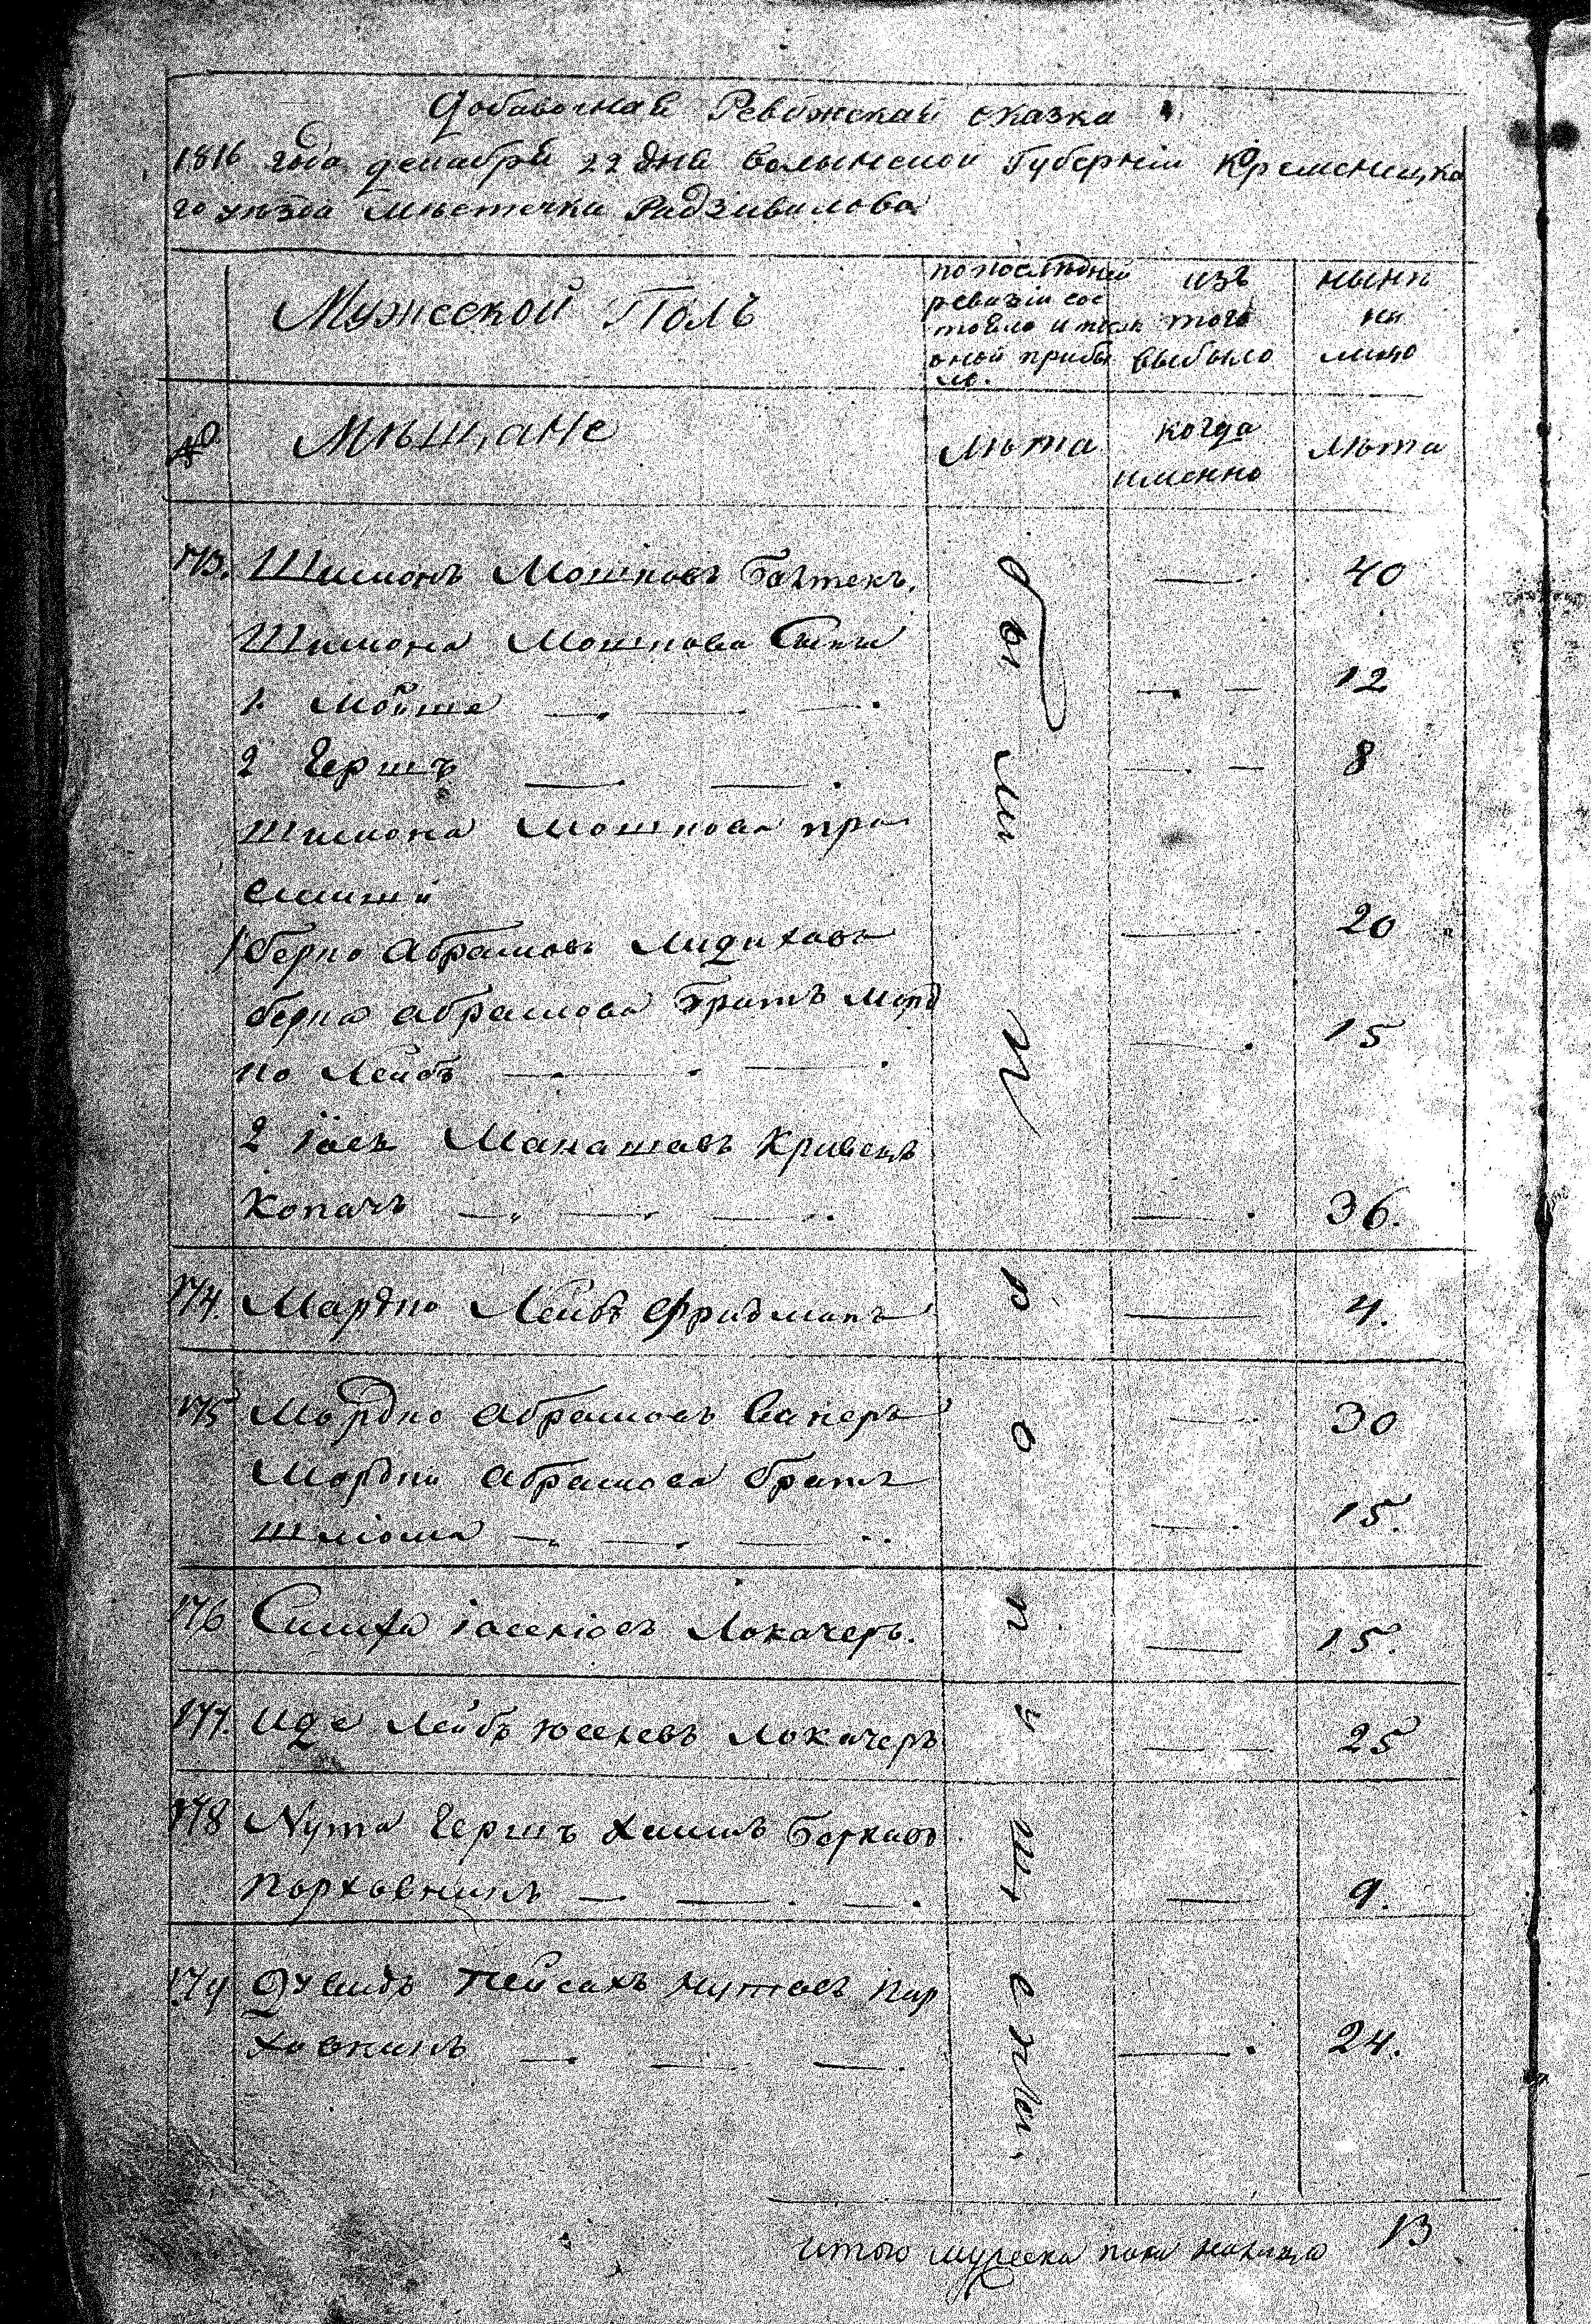 Добавочная Ревижская сказка
1816 года декабря 22 дня Волынской Губернiи Кременецка
го уѣзда Мѣстечка Радзивилова
Мужеской Полъ
по последней ревизiи сос тояло и после оной прибы ло.
изъ того выбыло
нынѣ на лицо
№
Мѣщане
Лѣта
когда именно
Лѣта
173. Шимонъ Мошковъ Бахтекъ. — 40
Шимона Мошкова Сыны
1 Мойше — 12
2 Гершъ — 8
Шимона Мошкова при
емыши
1 Берко Абрамовъ — 20
Берка Абрамова братъ Морд
ко Лейбъ — 15
2 Iосъ Манашовъ Кривецъ
Копачъ — 36.
174. Мардко Лейбъ Фридманъ — 4.
175 Мордко Абрамовъ — 30
Мордки Абрамова братъ
Шлiома — 15.
176 Симха Iосеkiовъ Локачеръ. — 15.
177. Иде Лейбъ Юселевъ Локачеръ — 25
178 Нута Гершъ Хаимъ Берковъ
Порховникъ — 9.
179 Дувидъ Пейсахъ Нутовъ Пор
ховникъ — 24.
были пропущены
итого мужеска пола налицо 13